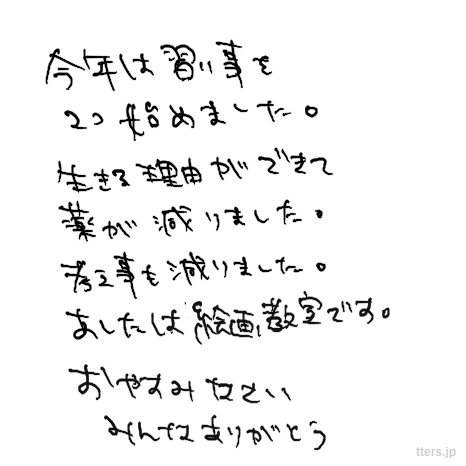 今年は習い事を
2つ始めました。
生きる理由ができて
薬が減りました。
考え事も減りました。
あしたは絵画教室です。
おやすみなさい
みんなありがとう
tters.jp